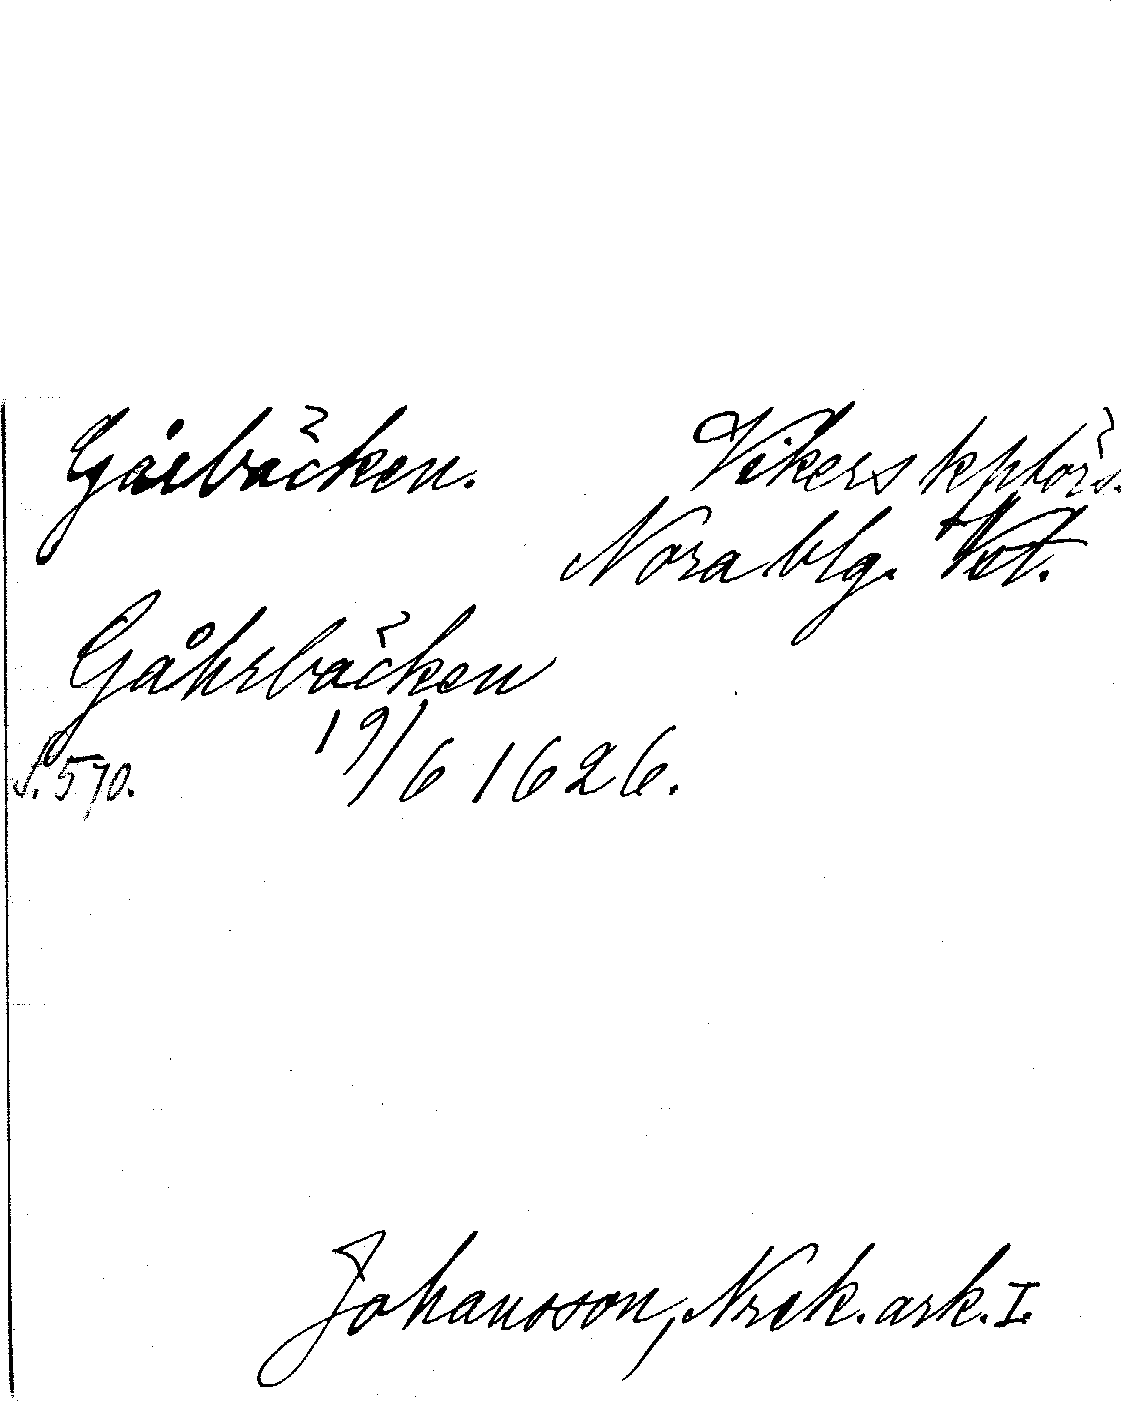 Gårbäcken. Vikers kplförs.
Nora blg. Vstm.
Gåhrbäcken
S. 570. 19/6 1626.
Johansson, Nrck. ark. I.